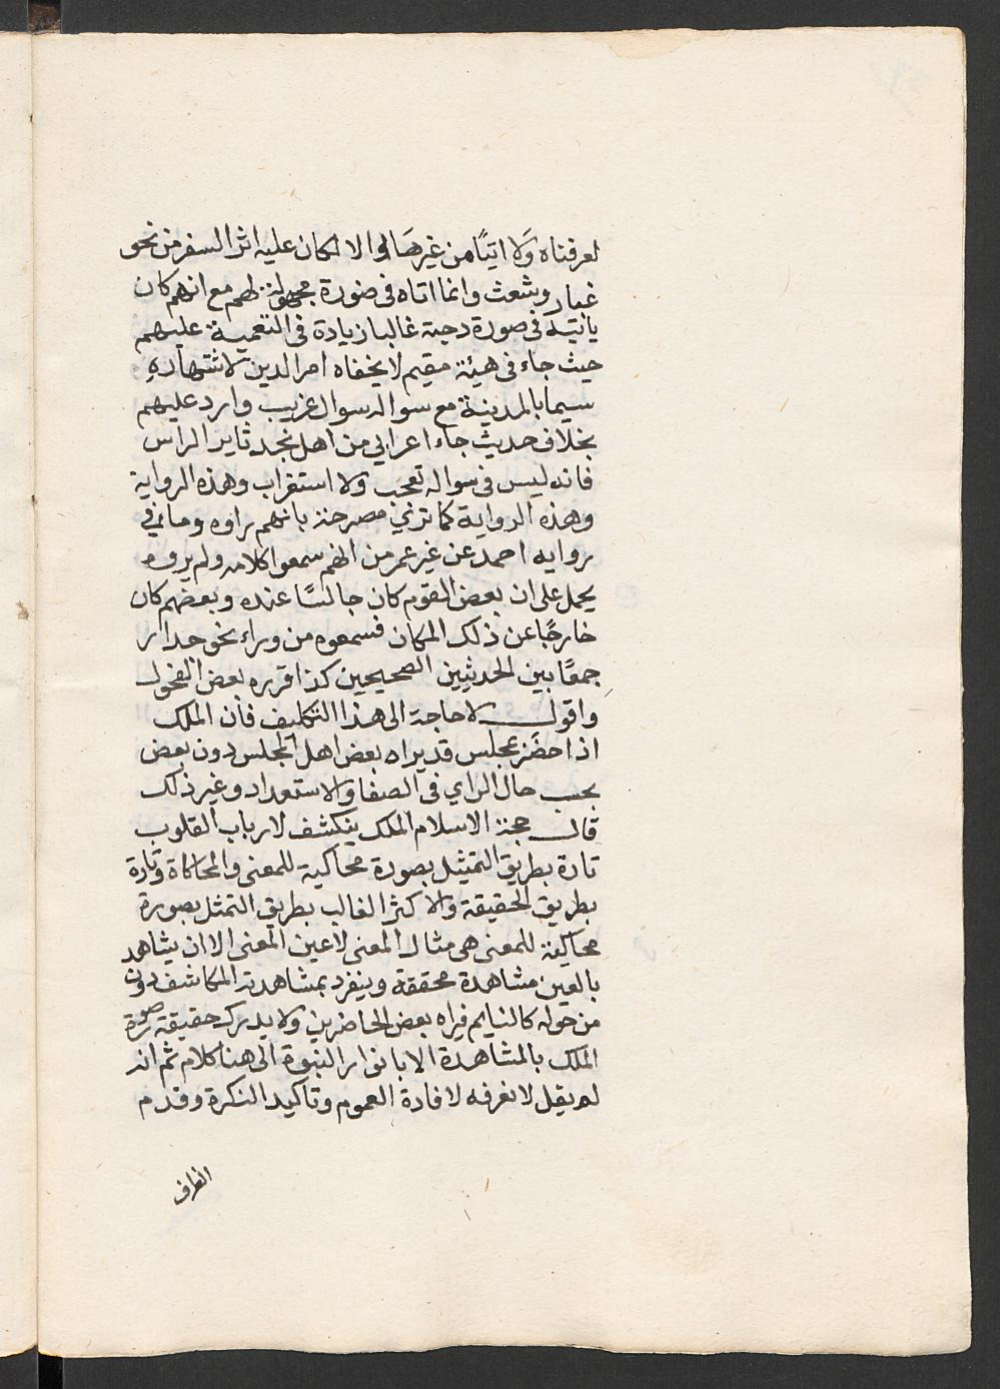 لعرفناه ولا اتيًا من غيرها والا لكان عليه اثر السفر من نحو
غبار وشعث وانما اتاه في صورة مجهولة لهم مع انهم كان
ياتيه في صورة دحية غالبا زيادة في التعمية عليهم
حيث جاء في هيئة مقيم لا يخفاه امر الدين لاشتهاره
سيما بالمدينة مع سواله سوال غريب وارد عليهم
بخلاف حديث جاء اعرابي من اهل نجد ثاير الراس
فانه ليس في سواله تعجب ولا استغراب وهذه الرواية
وهذه الرواية كما تري مصرحة بانهم راوه وما في
روايه احمد عن غير عمر من انهم سمعوا كلامه ولم يروه
يحمل على ان بعض القوم كان جالسًا عنده وبعضهم كان
خارجًا عن ذلك المكان فسمعوه من وراء نحو جدار
جمعًا بين الحديثين الصحيحين كذا قرره بعض الفحول
واقول لا حاجة الى هذا التكليف فان الملك
اذا حضر مجلس قد يراه بعض اهل المجلس دون بعض
بحسب حال الراي في الصفا والاستعداد وغير ذلك
قال حجة الاسلام الملك ينكشف لارباب القلوب
تارة بطريق التمثيل بصورة محاكية للمعنى والمحاكاة وتارة
بطريق الحقيقة والاكثر الغالب بطريق التمثل بصورة
محاكية للمعنى هي مثال المعنى لا عين المعنى الا ان يشاهد
بالعين مشاهدة محققة وينفرد بمشاهدته المكاشف دون
من حوله كالنايم فيراه بعض الحاضرين ولا يدرك حقيقة صورة
الملك بالمشاهدة الا بانوار النبوة الى هنا كلام ثم انه
لم يقل لا نعرفه لافادة العموم وتاكيد النكرة وقدم
الظرف